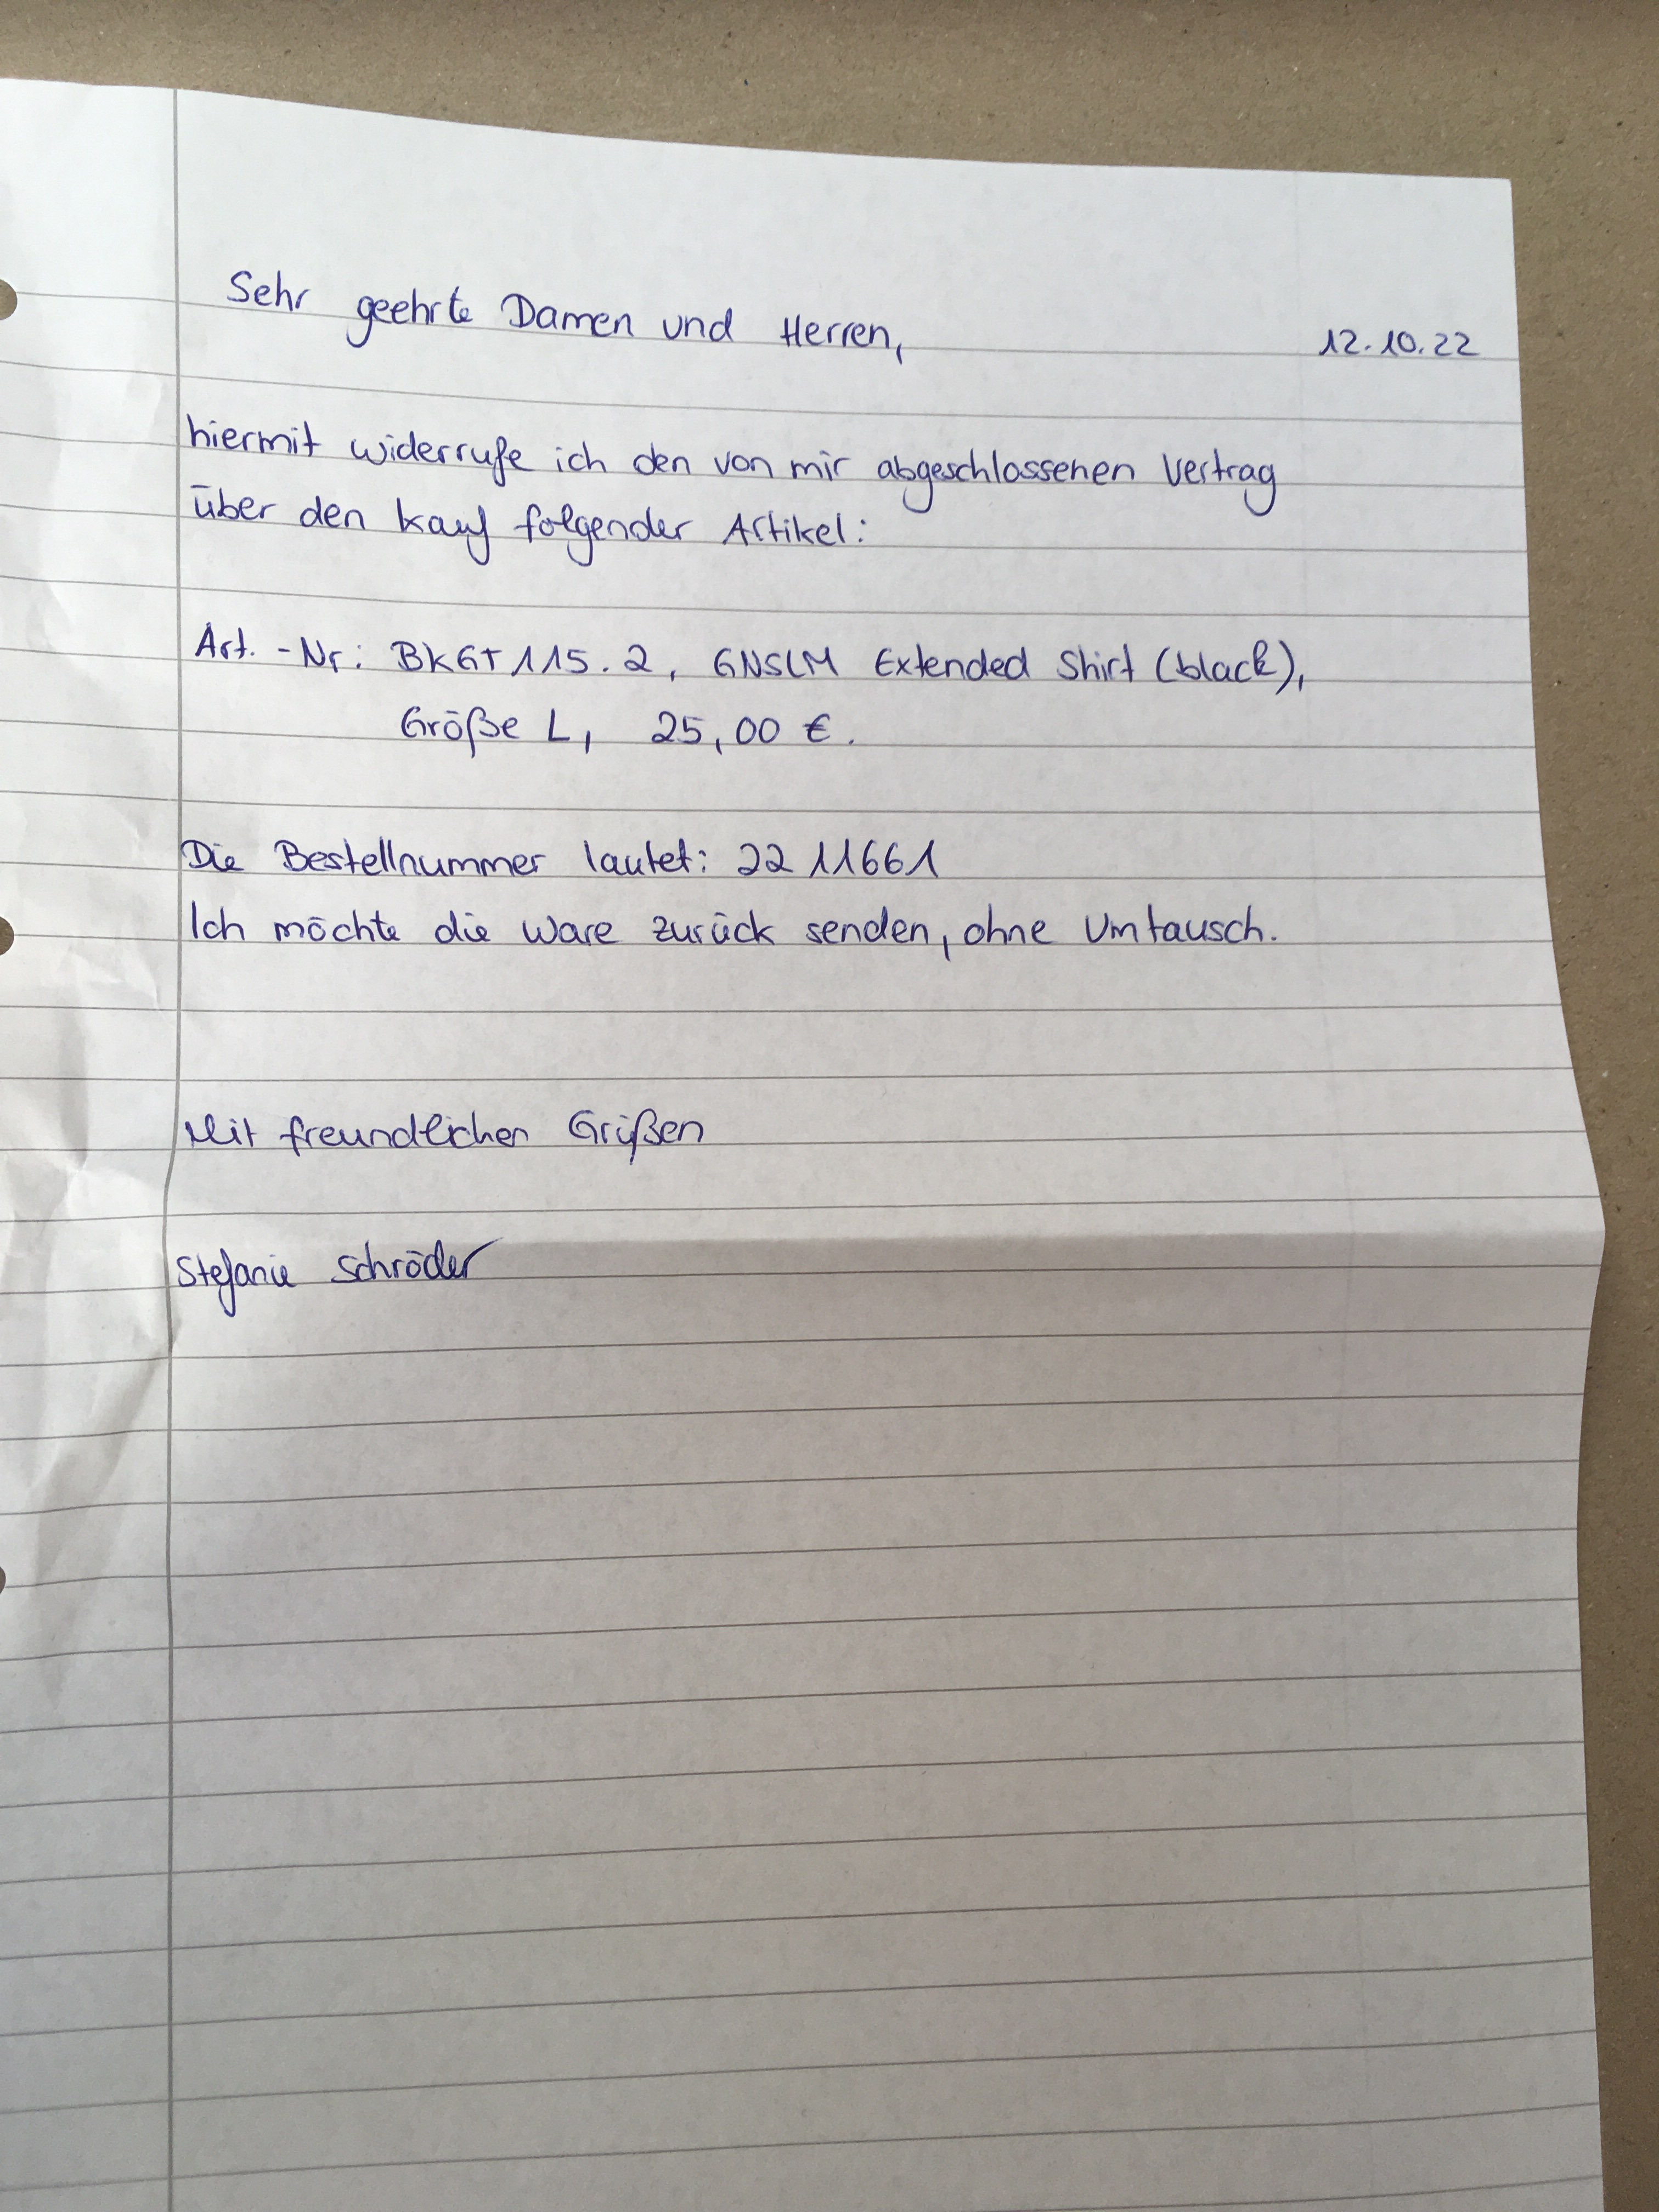 Sehr geehrte Damen und Herren,
12.10.22
hiermit widerrufe ich den von mir abgeschlossenen Vertrag
über den Kauf folgender Artikel:
Art.-Nr: BKGT115.2, GNSLM Extended Shirt (black),
Größe L, 25,00 €.
Die Bestellnummer lautet: 22 11661
Ich möchte die Ware zurück senden, ohne Umtausch.
Mit freundlichen Grüßen
Stefanie Schröder